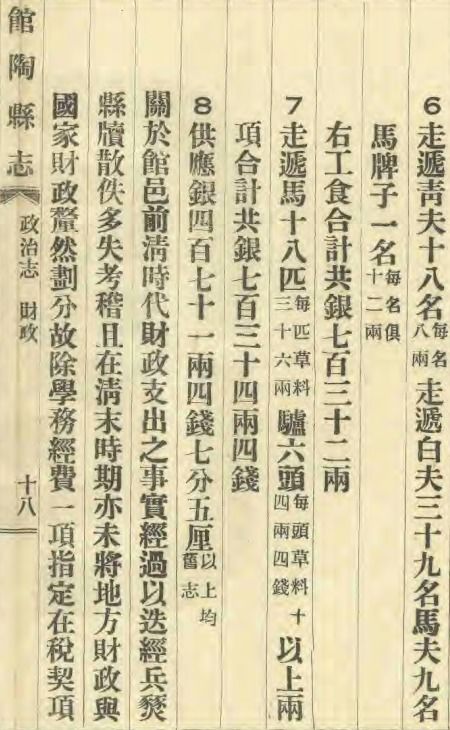 6走遞靑夫十八名每名八兩走遞白夫三十九名馬夫九名
馬牌子一名每名俱十二兩
右工食合計共銀七百三十二兩
7走遞馬十八匹每匹草料三十六兩驢六頭每頭草料十四兩四錢以上兩
項合計共銀七百三十四兩四錢
8供應銀四百七十一兩四錢七分五厘以上均舊志
關於館邑前淸時代財政支出之事實經過以迭經兵燹
縣牘散佚多失考稽且在淸末時期亦未將地方財政與
國家財政釐然劃分故除學務經費一項指定在稅契項
館陶縣志 政治志 財政 十八